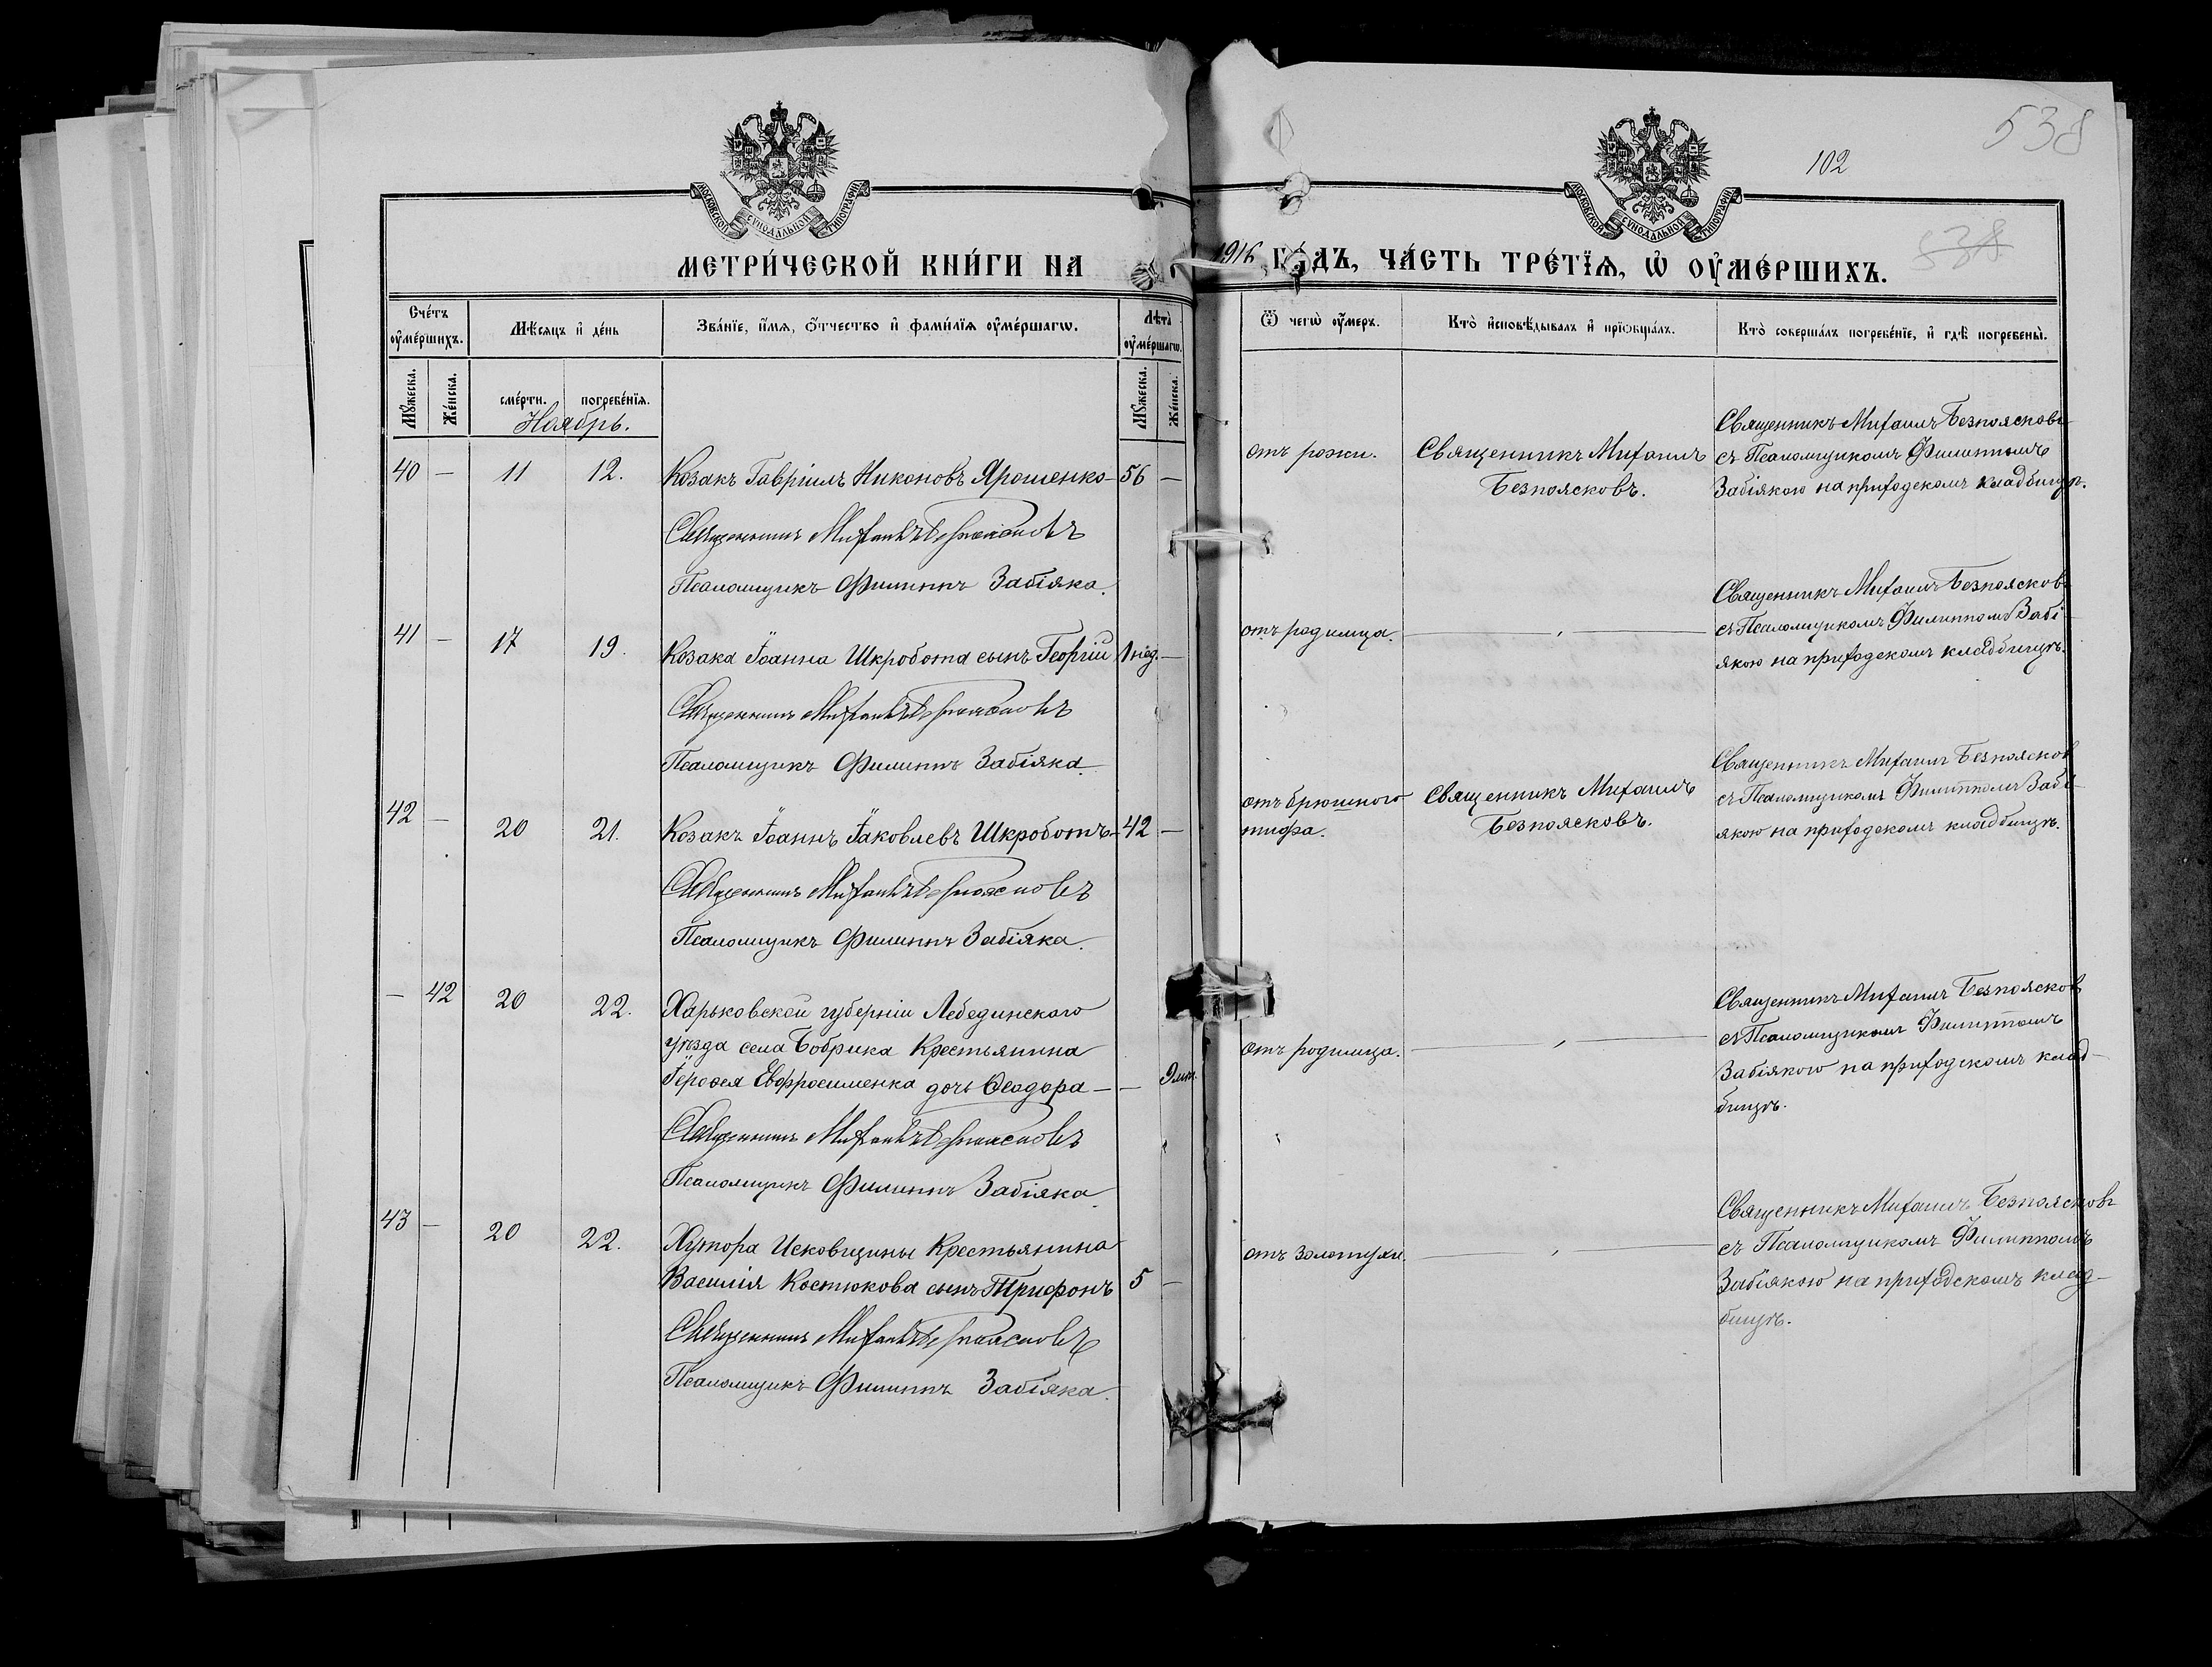 538
102
МОСКОВСКОЙ СѴНОДАЛЬНОЙ ТИПОГРАФІИ
МОСКОВСКОЙ СѴНОДАЛЬНОЙ ТИПОГРАФІИ
МЕТРИ́ЧЕСКОЙ КНИ́ГИ НА 1916 ГО́ДЪ, ЧА́СТЬ ТРЕ́ТЇѦ, Ѡ҆ ОУ҆МЕ́РШИХЪ.
538
Сче́тъ оу҆ме́ршихъ.
Мѣ́сяцъ и҆ де́нь
Зва́нїе, и҆́мя, ѻ҆́тчество и҆ фами́лїя оу҆ме́ршагѡ.
Лѣта̀ оу҆ме́ршагѡ.
Ѿ чегѡ̀ оу҆́меръ.
Кто̀ и҆сповѣ́дывалъ и҆ прїѡбща́лъ.
Кто̀ соверша́лъ погребе́нїе, и҆ гдѣ̀ погребены̀.
Мꙋ́жеска.
Же́нска.
сме́рти.
погребе́нїя.
Мꙋ́жеска.
Же́нска.
Ноябрь.
40 — 11 12. Козакъ Гавріилъ Никоновъ Ярошенко — 56 —
Священникъ Михаилъ Безпоясковъ
Псаломщикъ Филиппъ Забіяка.
отъ рожи.
Священникъ Михаилъ
Безпоясковъ.
Священникъ Михаилъ Безпоясковъ
съ Псаломщикомъ Филиппомъ
Забіякою на приходскомъ кладбищѣ.
41 — 17 19. Козака Іоанна Шкробота сынъ Георгій 1 нед. —
Священникъ Михаилъ Безпоясковъ
Псаломщикъ Филиппъ Забіяка.
отъ родимца. — „ —
Священникъ Михаилъ Безпоясковъ
съ Псаломщикомъ Филиппомъ Забі-
якою на приходскомъ кладбищѣ.
42 — 20 21. Козакъ Іоаннъ Іаковлевъ Шкроботъ — 42 —
Священникъ Михаилъ Безпоясковъ
Псаломщикъ Филиппъ Забіяка.
отъ брюшного
тифа.
Священникъ Михаилъ
Безпоясковъ.
Священникъ Михаилъ Безпоясков
съ Псаломщикомъ Филиппомъ Забі-
якою на приходскомъ кладбищѣ.
— 42 20 22. Харьковской губерніи Лебединскаго
уѣзда села Бобрика Крестьянина
Іерофея Евфросименка дочь Ѳеодора — —
Священникъ Михаилъ Безпоясковъ
Псаломщикъ Филиппъ Забіяка.
отъ родимца. — „ —
Священникъ Михаилъ Безпоясков
съ Псаломщикомъ Филиппомъ
Забіякою на приходскомъ клад-
бищѣ.
43 — 20 22. Хутора Исковщины Крестьянина
Василія Костюкова сынъ Трифонъ 5 —
Священникъ Михаилъ Безпоясковъ
Псаломщикъ Филиппъ Забіяка.
отъ золотухи. — „ —
Священникъ Михаилъ Безпоясковъ
съ Псаломщикомъ Филиппомъ
Забіякою на приходскомъ клад-
бищѣ.